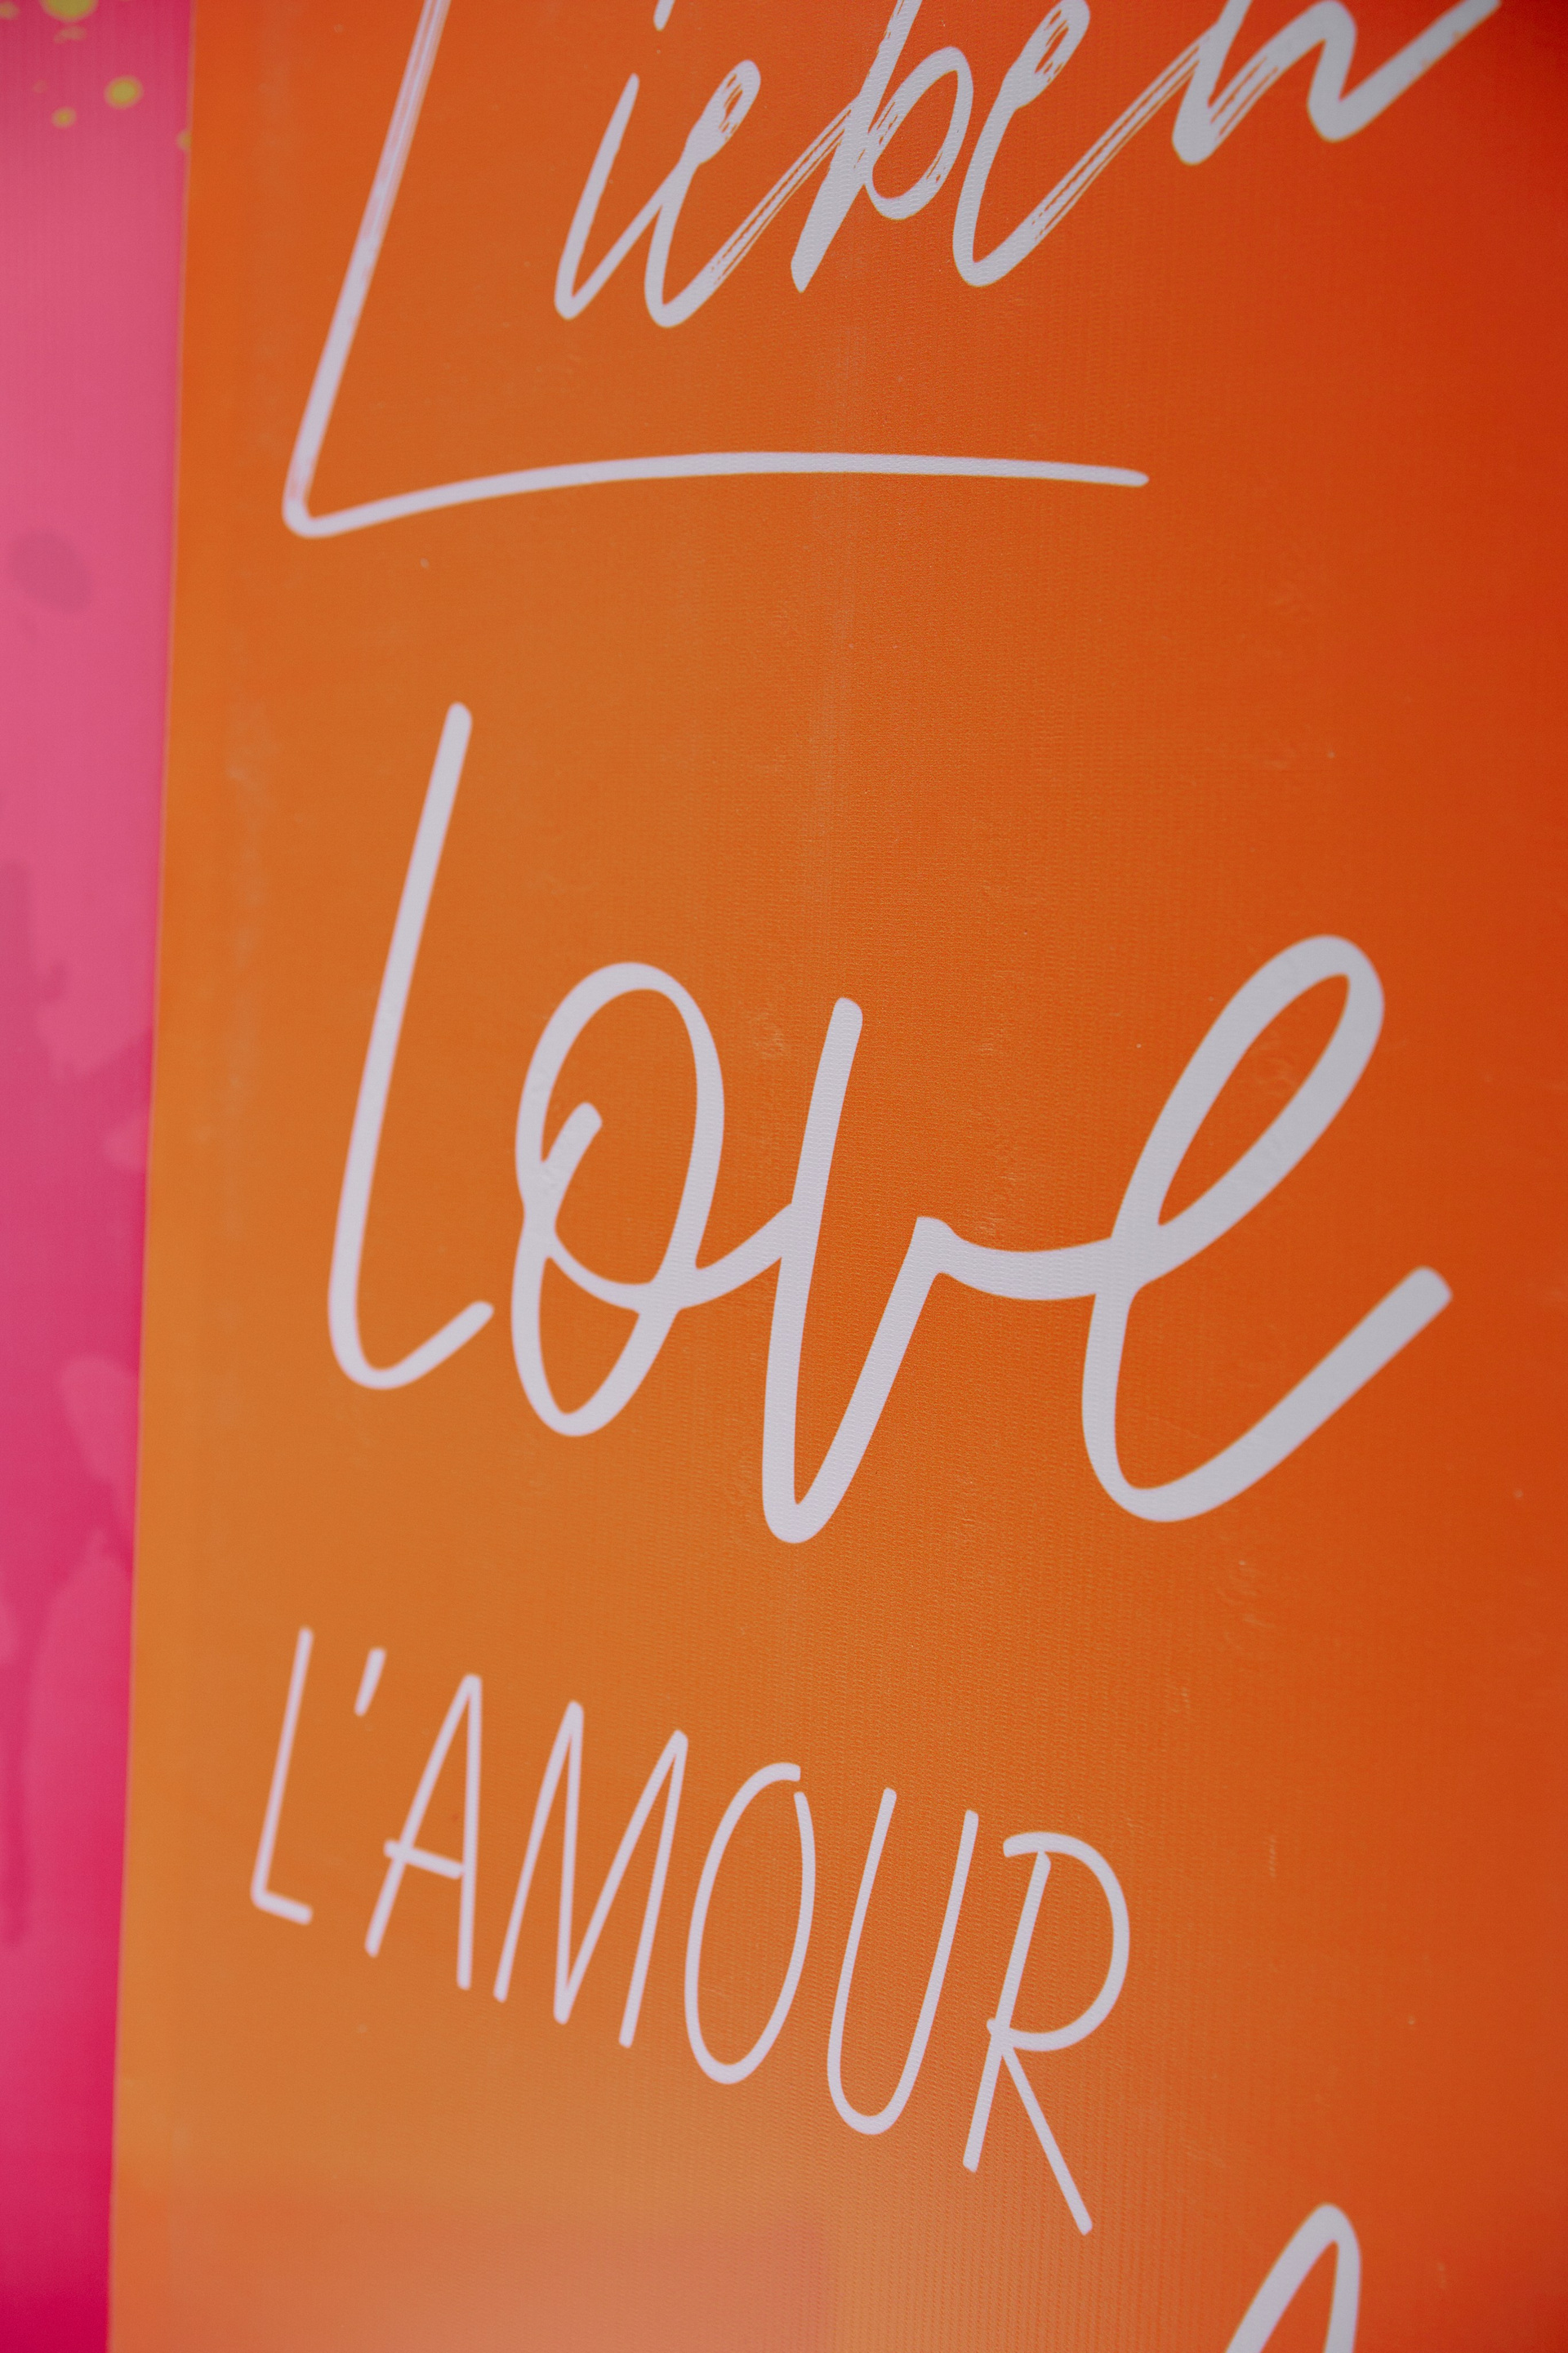 Lieben
Love
L'AMOUR